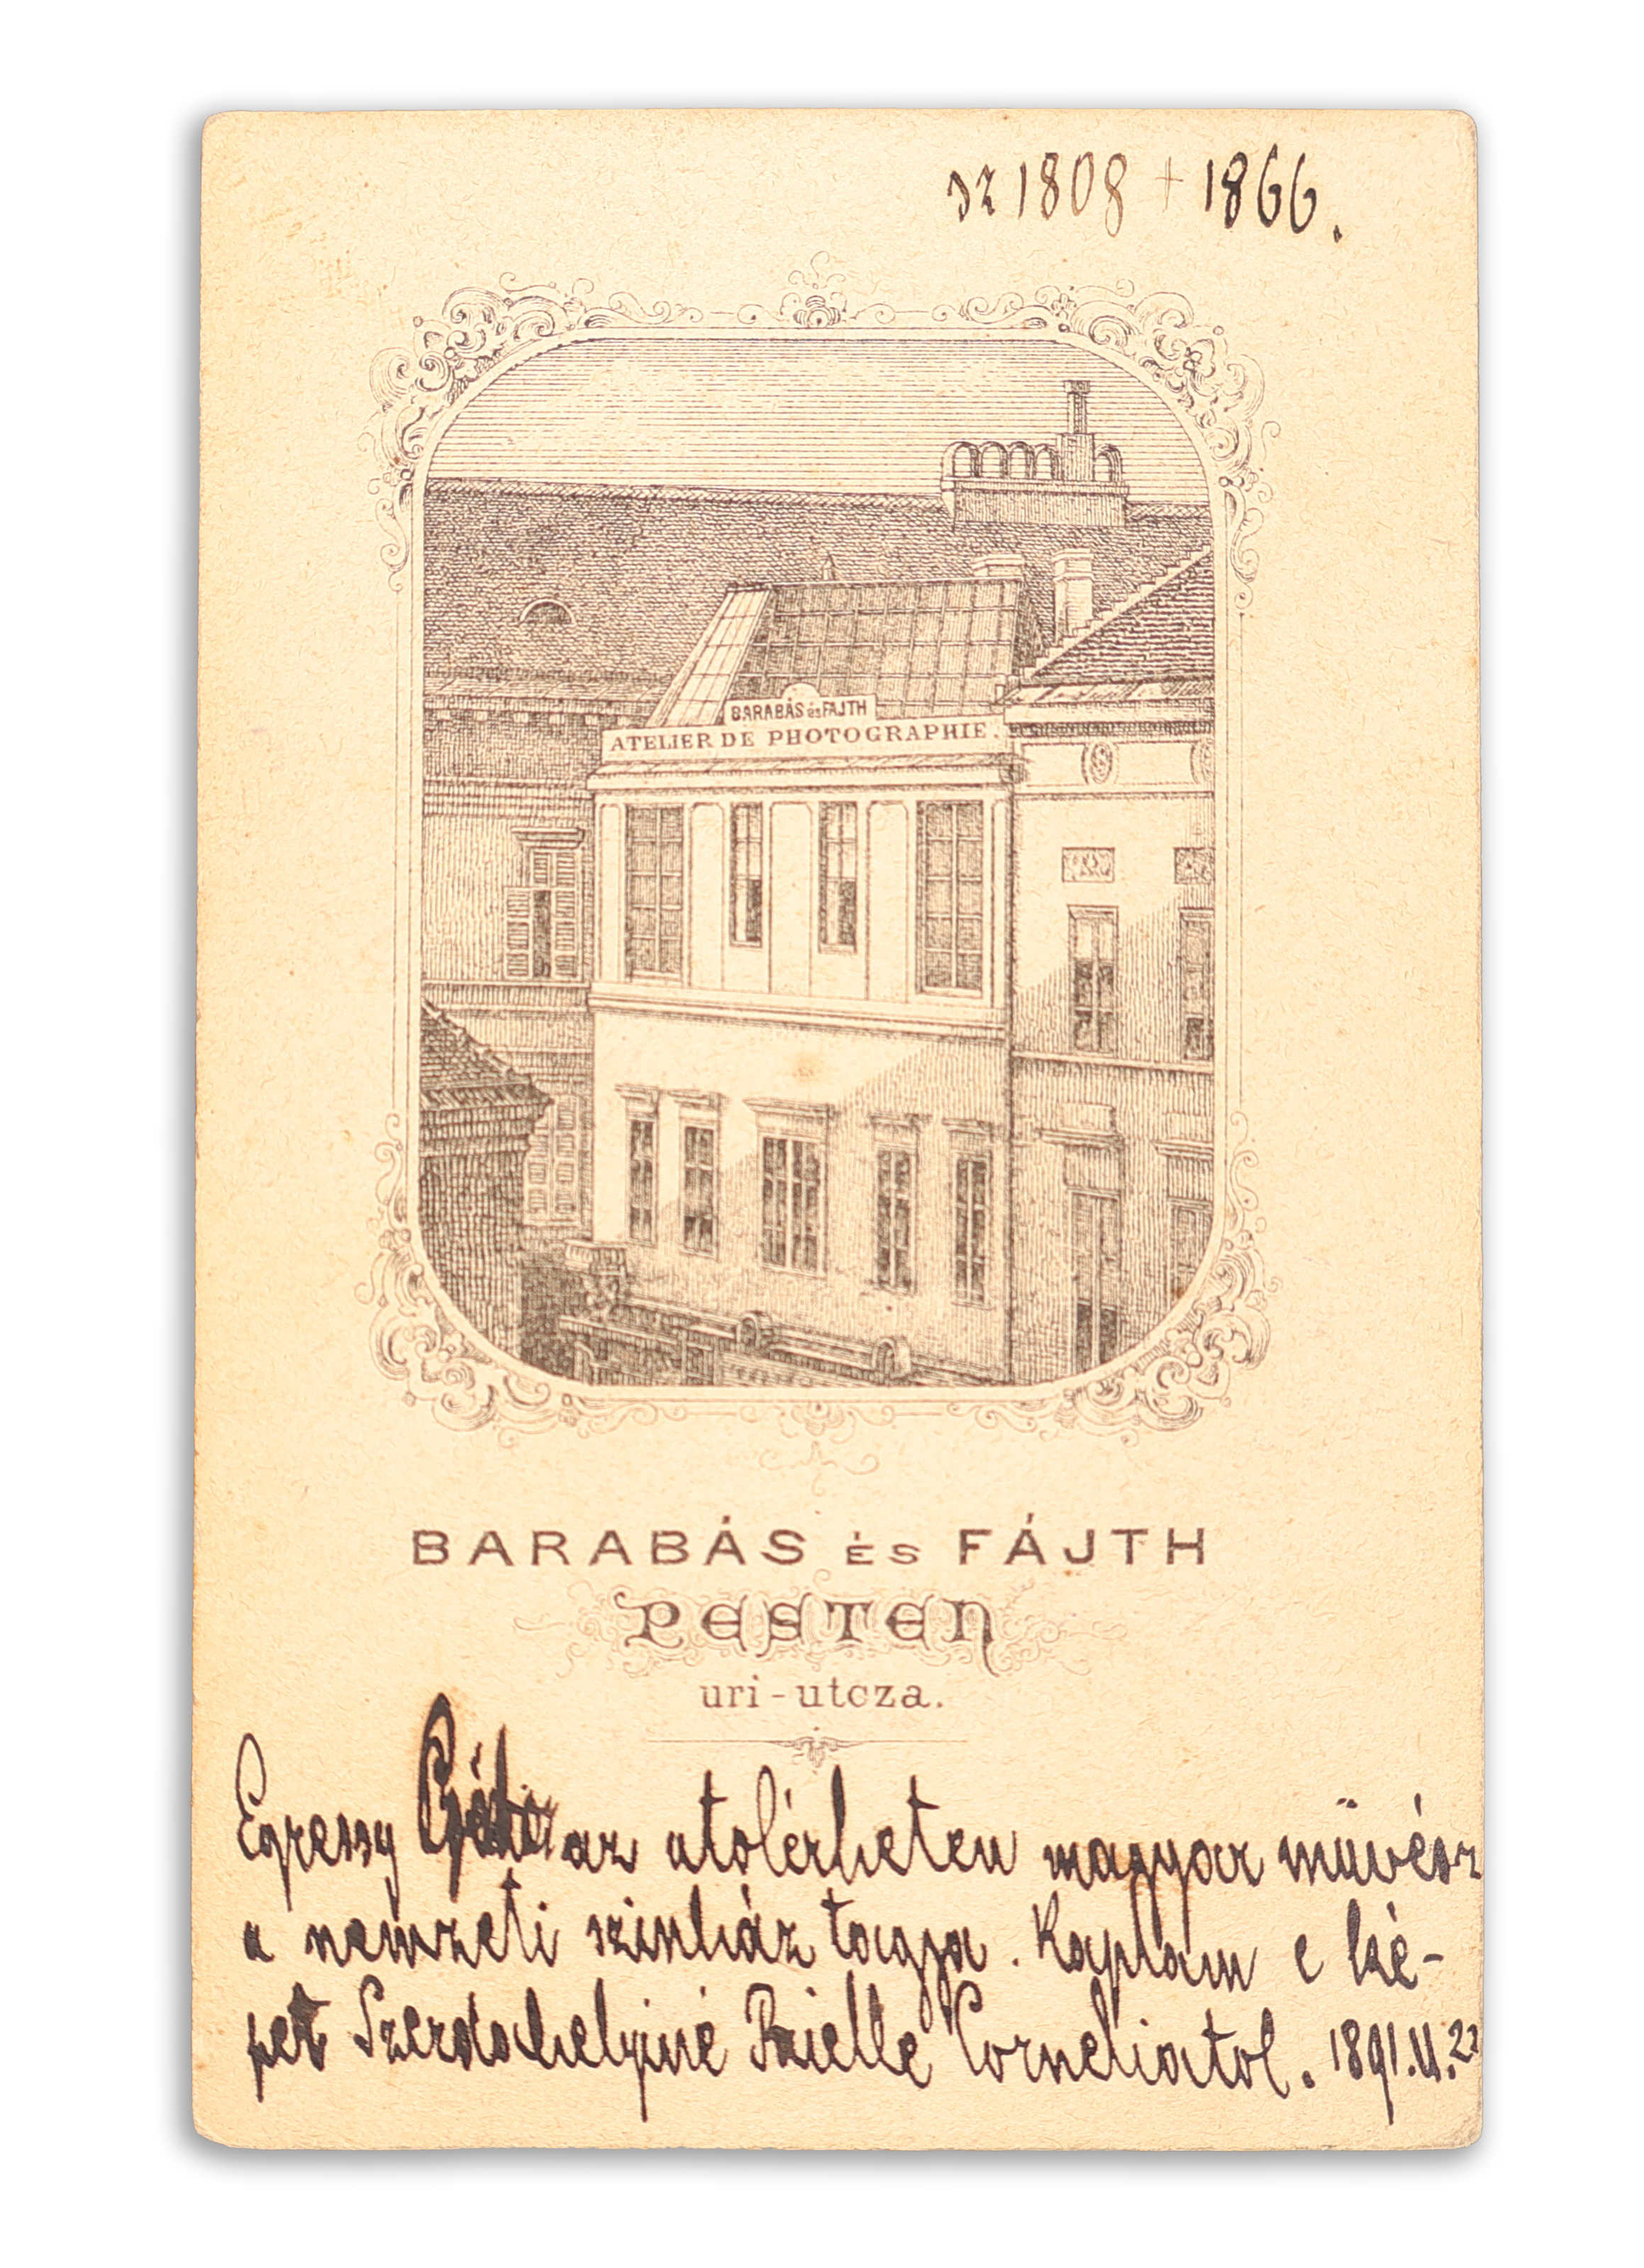 sz 1808 + 1866.
BARABÁS és FAJTH
ATELIER DE PHOTOGRAPHIE.
BARABÁS ÉS FÁJTH
PESTEN
uri-utcza.
Egressy az utolérheten magyar müvész
a nemzeti szinház tagja. Kaptam e ké-
pet Szerdahelyiné Prielle Corneliatol. 1891.